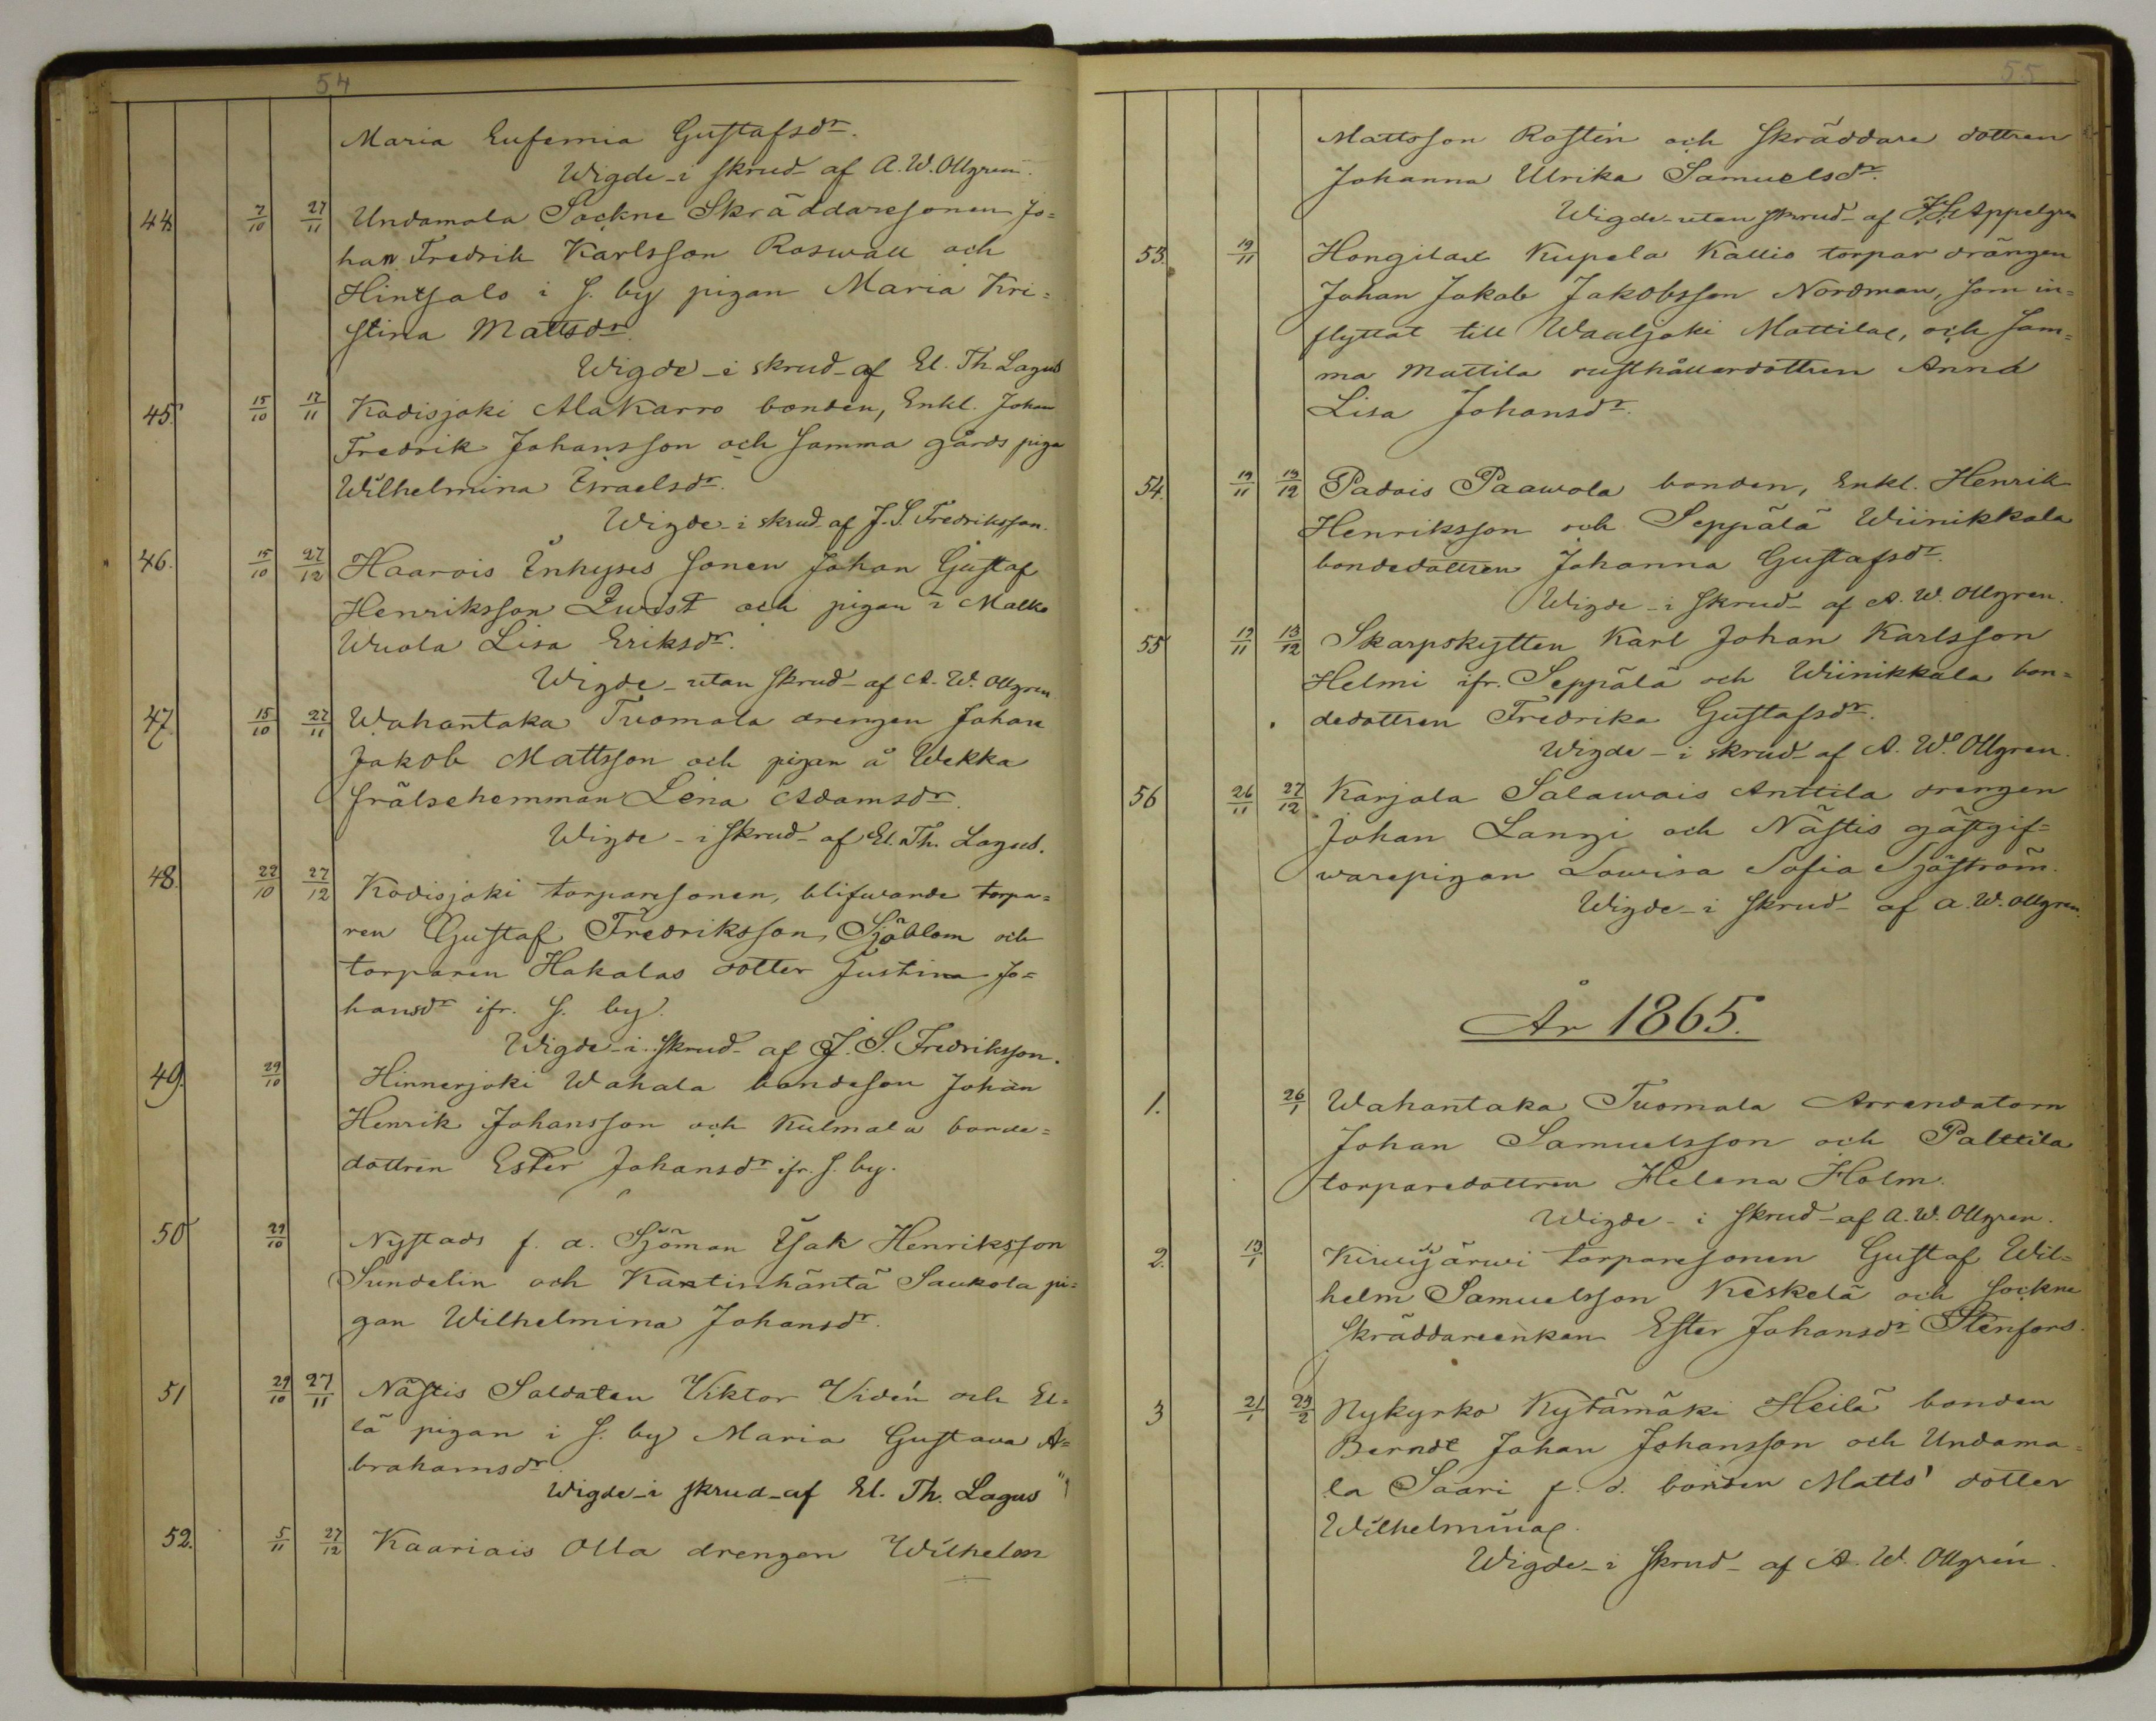 54
Maria Eufemia Gustafsdr.
Wigde i skrud af A. W. Ollgren.
44. 7/10 27/11 Undamala Sockne Skräddaresonen Jo=
han Fredrik Karlsson Roswall och
Hintsalo i s. by pigan Maria Kri=
stina Mattsdr.
Wigde i skrud af El. Th. Lagus
45. 15/10 17/11 Kodisjoki Alakarro bonden, Enkl. Johan
Fredrik Johansson och samma gårds piga
Wilhelmina Israelsdr.
Wigde i skrud af J. S. Fredriksson.
46. 15/10 27/12 Haarois Enhyses sonen Johan Gustaf
Henriksson Qwist och pigan i Malko
Wuola Lisa Eriksdr.
Wigde utan skrud af A. W. Ollgren
47. 15/10 27/11 Wahantaka Tuomala drengen Johan
Jakob Mattsson och pigan å Wekka
frälsehemman Lena Adamsdr.
Wigde i skrud af El. Th. Lagus.
48. 22/10 27/12 Kodisjoki torparesonen, blifwande torpa=
ren Gustaf Fredriksson Sjöblom och
torparen Hakalas dotter Justina Jo=
hansdr ifr. s. by.
Wigde i skrud af J. S. Fredriksson.
49. 29/10 Hinnerjoki Wahala bondeson Johan
Henrik Johansson och Kulmala bonde=
dottren Ester Johansdr ifr. s. by.
50 29/10 Nystads f. d. Sjöman Isak Henriksson
Sundelin och Kantinhäntä Saukola pi=
gan Wilhelmina Johansdr.
51 29/10 27/11 Nästis Soldaten Viktor Vidén och El=
lä pigan i s. by Maria Gustava A=
brahamsdr
Wigde i skrud af El. Th. Lagus
52. 5/11 27/12 Kaariais Olla drengen Wilhelm
55
Mattsson Rostén och skräddare dottren
Johanna Ulrika Samuelsdr.
Wigde utan skrud af Appelgren
53. 19/11 Hongilax Kupela Kallio torpar drängen
Johan Jakob Jakobsson Nordman, som in=
flyttat till Waaljoki Mattila, och sam=
ma Mattila rusthållardottren Anna
Lisa Johansdr.
54. 19/11 13/12 Padois Paawola bonden, Enkl. Henrik
Henriksson och Seppälä Wiinikkala
bondedottren Johanna Gustafsdr.
Wigde i skrud af A. W. Ollgren.
55 19/11 13/12 Skarpskytten Karl Johan Karlsson
Helmi ifr. Seppälä och Wiinikkala bon=
dedottren Fredrika Gustafsdr.
Wigde i skrud af A. W. Ollgren.
56 26/11 27/12 Karjala Salawais Anttila drengen
Johan Langi och Nästis gästgif=
warepigan Lowisa Sofia Sjöström.
Wigde i skrud af A. W. Ollgren.
År 1865.
1. 26/1 Wahantaka Tuomala Arrendatorn
Johan Samuelsson och Palttila
torparedottren Helena Holm.
Wigde i skrud af A. W. Ollgren.
2. 13/1 Kiwijärwi torparesonen Gustaf Wil=
helm Samuelsson Keskelä och sockne
skräddareenkan Ester Johansdr Stenfors.
3 21/1 23/2 Nykyrko Kytämäki Heilä bonden
Berndt Johan Johansson och Undama=
la Saari f. d. bonden Matts' dotter
Wilhelmina.
Wigde i skrud af A. W. Ollgrén.